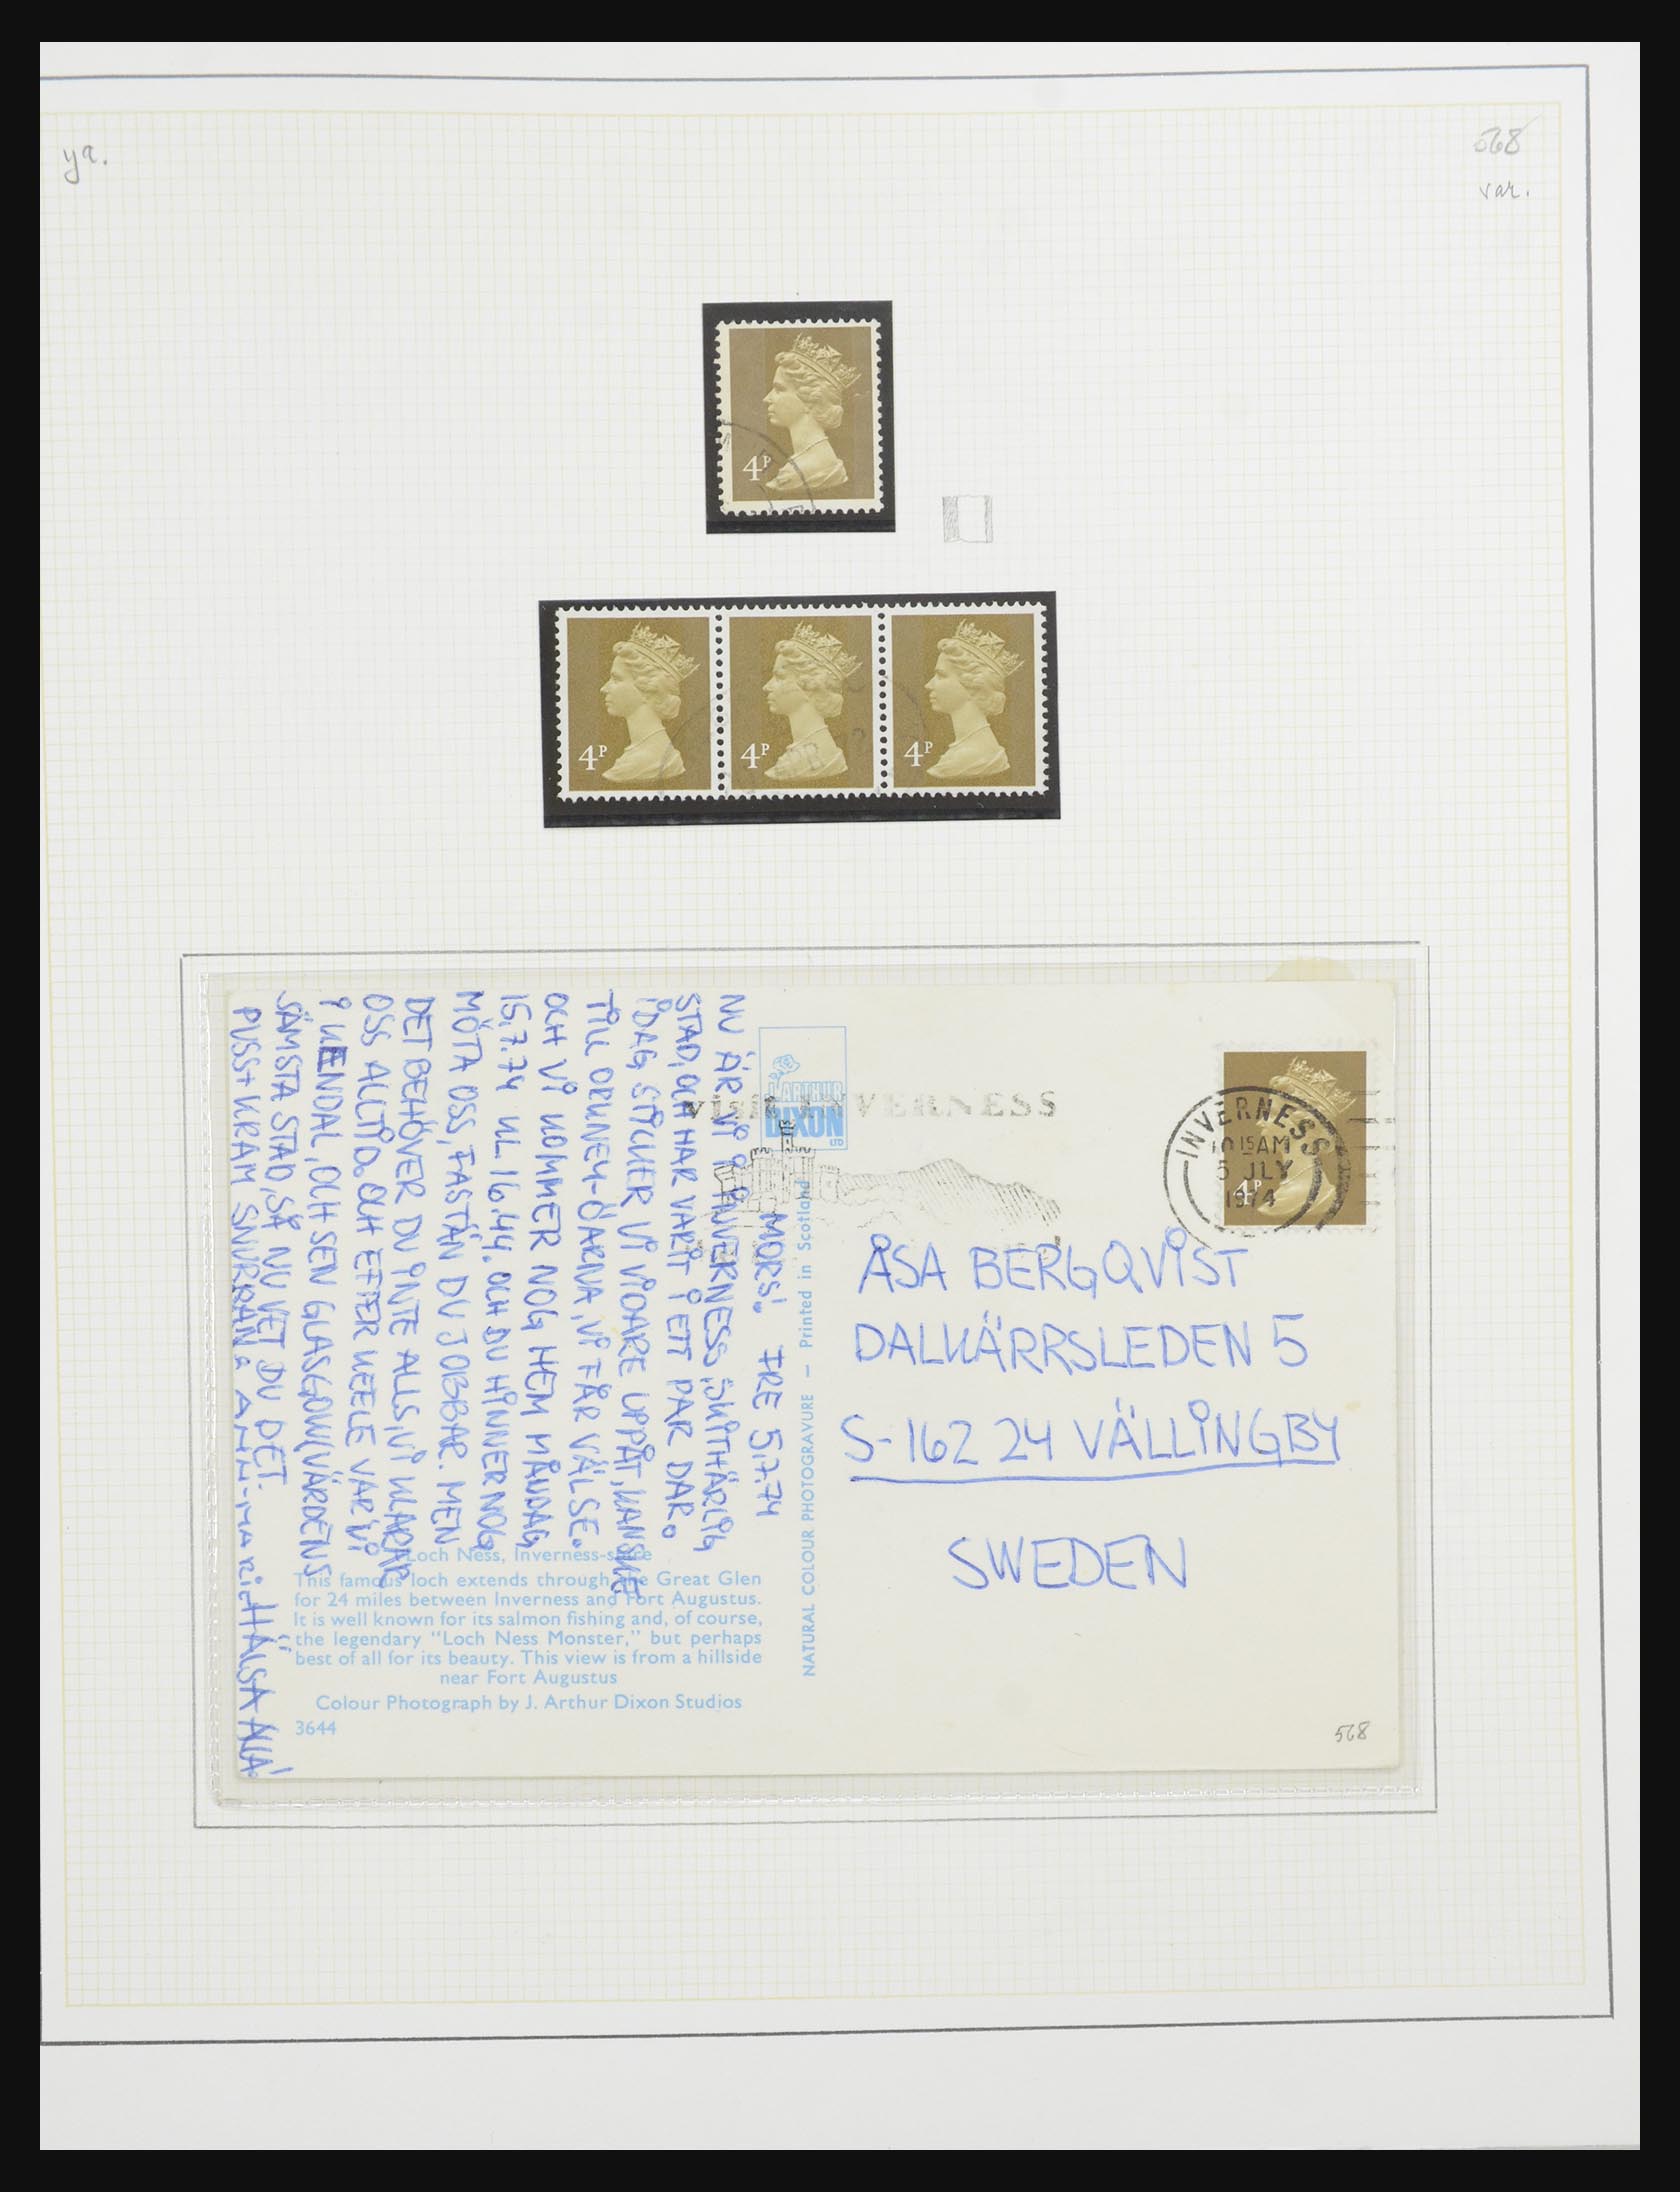 ya.
568
var.
4P
4P
4P
4P
VISIT INVERNESS
INVERNESS
10 15 AM
5 JLY
1974
4P
J. ARTHUR
DIXON
LTD
MORS! FRE 5.7.74
NU ÄR VI I INVERNESS, SKITHÄRLIG
STAD, OCH HAR VARIT I ETT PAR DAR.
IDAG STICKER VI VIDARE UPPÅT, KANSKE
TILL ORKNEY-ÖARNA, VI FÅR VÄL SE.
OCH VI KOMMER NOG HEM MÅNDAG
15.7.74 KL. 16.44, OCH DU HINNER NOG
MÖTA OSS, FASTÄN DU JOBBAR. MEN
DET BEHÖVER DU INTE ALLS, VI KLARAR
OSS ALLTID. OCH EFTER KEELE VAR VI
I KENDAL, OCH SEN GLASGOW (VÄRDENS
SÄMSTA STAD, SÅ NU VET DU DET.
PUSS+KRAM SNURRAN & ANN-MARIE HÄLSA ALLA!
ÅSA BERGQVIST
DALKÄRRSLEDEN 5
S-162 24 VÄLLINGBY
SWEDEN
NATURAL COLOUR PHOTOGRAVURE — Printed in Scotland
Loch Ness, Inverness-shire
This famous loch extends through the Great Glen
for 24 miles between Inverness and Fort Augustus.
It is well known for its salmon fishing and, of course,
the legendary "Loch Ness Monster," but perhaps
best of all for its beauty. This view is from a hillside
near Fort Augustus
Colour Photograph by J. Arthur Dixon Studios
3644
568